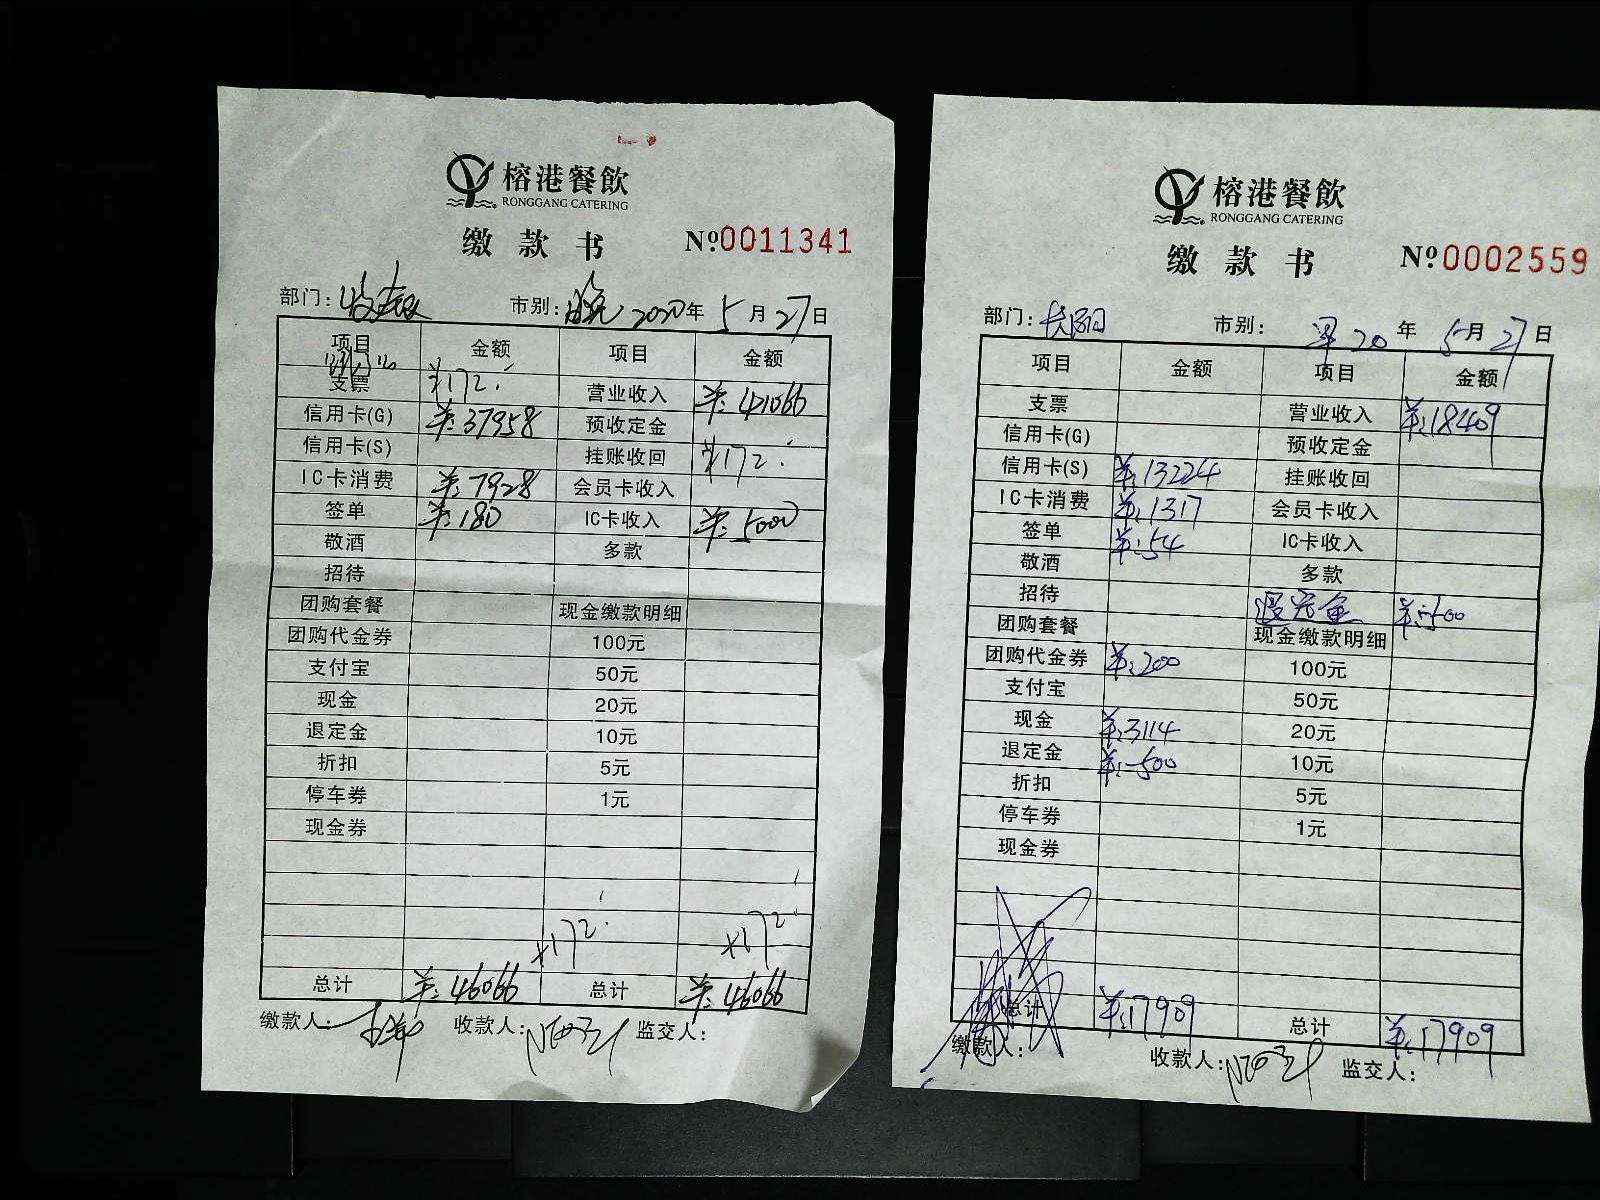 榕港餐飲
RONGGANG CATERING
缴款书 Nº0011341
部门: 市别: 晚 2020年 5月27日
项目 金额 项目 金额
支票 ¥172. 营业收入 ¥:41066
信用卡(G) ¥:37958 预收定金
信用卡(S) 挂账收回 ¥172.
IC卡消费 ¥:7928 会员卡收入
签单 ¥:180 IC卡收入 ¥:5000
敬酒 多款
招待
团购套餐 现金缴款明细
团购代金券 100元
支付宝 50元
现金 20元
退定金 10元
折扣 5元
停车券 1元
现金券
¥172. ¥172.
总计 ¥:46066 总计 ¥:46066
缴款人: 收款人: 监交人:
榕港餐飲
RONGGANG CATERING
缴款书 Nº0002559
部门: 长阳 市别: 早 20年 5月27日
项目 金额 项目 金额
支票 营业收入 ¥:18409
信用卡(G) 预收定金
信用卡(S) ¥:13224 挂账收回
IC卡消费 ¥:1317 会员卡收入
签单 ¥:54 IC卡收入
敬酒 多款
招待 退定金 ¥:-500
团购套餐 现金缴款明细
团购代金券 ¥:200 100元
支付宝 50元
现金 ¥:3114 20元
退定金 ¥:-500 10元
折扣 5元
停车券 1元
现金券
总计 ¥:17909 总计 ¥:17909
缴款人: 收款人: 监交人: